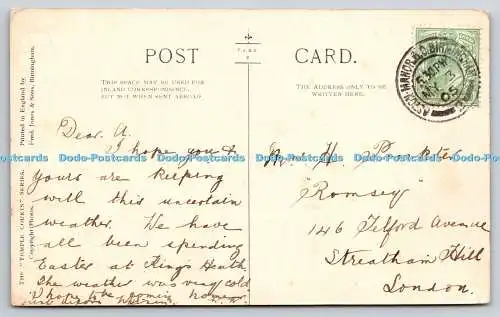 POST CARD.
THIS SPACE MAY BE USED FOR
INLAND CORRESPONDENCE,
BUT NOT WHEN SENT ABROAD
THE ADDRESS ONLY TO BE
WRITTEN HERE.
Printed in England by
Fred. Jones & Sons, Birmingham.
THE "TEMPLE COURIN" SERIES.
Copyright Photos.
Dear A.
I hope you &
yours are keeping
well this uncertain
weather. We have
all been spending
Easter at King's Heath
The weather was very cold
I hope to be coming home
H.
"Romsey"
146 Telford Avenue
Streatham Hill
London.
BIRMINGHAM
05
Dodo-Postcards Dodo-Postcards Dodo-Postcards Dodo-Postcards